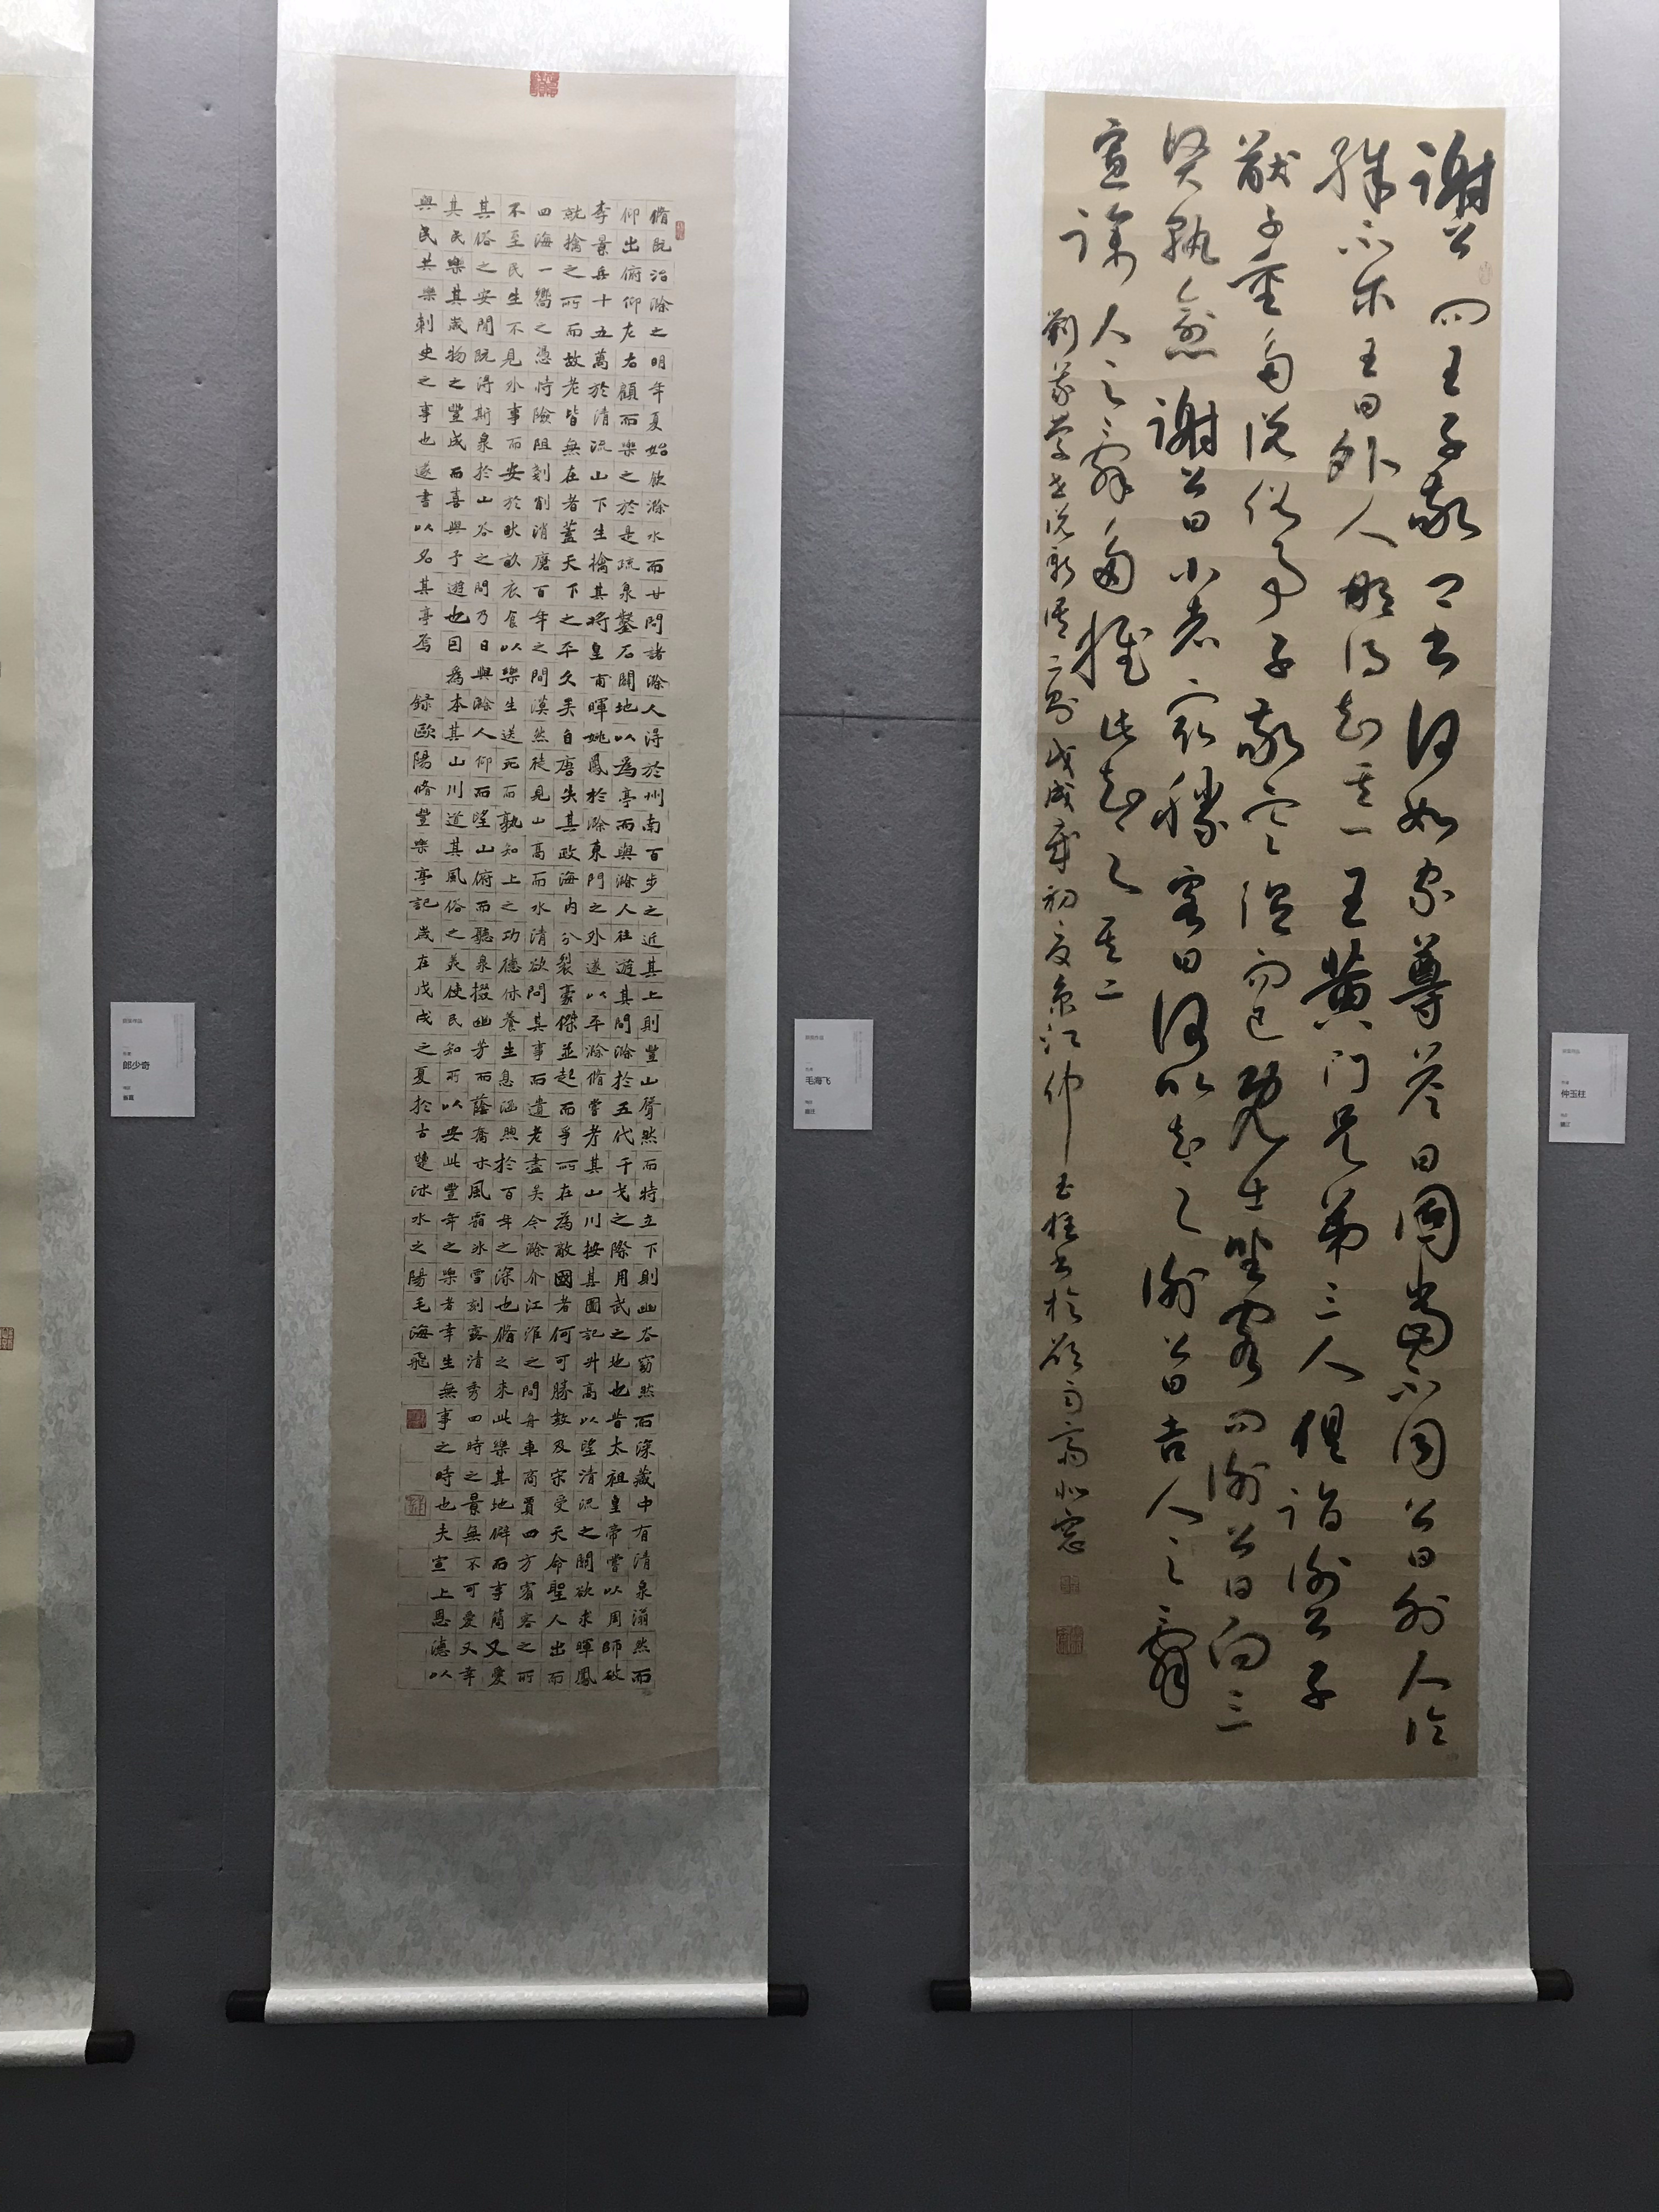 脩既治滁之明年夏始飲滁水而甘問諸滁人得於州南百步之近其上則豐山聳然而特立下則幽谷窈然而深藏中有清泉滃然而
仰出俯仰左右顧而樂之於是疏泉鑿石闢地以為亭而與滁人往遊其間滁於五代干戈之際用武之地也昔太祖皇帝嘗以周師破
李景兵十五萬於清流山下生擒其將皇甫暉姚鳳於滁東門之外遂以平滁脩嘗考其山川按其圖記升高以望清流之關欲求暉鳳
就擒之所而故老皆無在者蓋天下之平久矣自唐失其政海內分裂豪傑並起而爭所在為敵國者何可勝數及宋受天命聖人出而
四海一嚮之憑恃險阻剗削消磨百年之間漠然徒見山高而水清欲問其事而遺老盡矣今滁介江淮之間舟車商賈四方賓客之所
不至民生不見外事而安於畎畝衣食以樂生送死而孰知上之功德休養生息涵煦於百年之深也脩之來此樂其地僻而事簡又愛
其俗之安閒既得斯泉於山谷之間乃日與滁人仰而望山俯而聽泉掇幽芳而蔭喬木風霜冰雪刻露清秀四時之景無不可愛又幸
其民樂其歲物之豐成而喜與予遊也因為本其山川道其風俗之美使民知所以安此豐年之樂者幸生無事之時也夫宣上恩德以
與民共樂刺史之事也遂書以名其亭焉 録歐陽脩豐樂亭記歲在戊戌之夏於古楚沭水之陽毛海飛
謝公問王子敬君書何如家尊答曰固當不同公曰外人論
殊不尔王曰外人那得知其一王黄門兄弟三人俱詣謝公子
猷子重多説俗事子敬寒溫而已既出坐客問謝公曰向三
賢孰愈謝公曰小者最勝客曰何以知之謝公曰吉人之辭
寡躁人之辭多推此知之其二
劉義慶世説新語二則戊戌歲初夏京江仲玉柱書於
郎少奇
毛海飞
仲玉柱